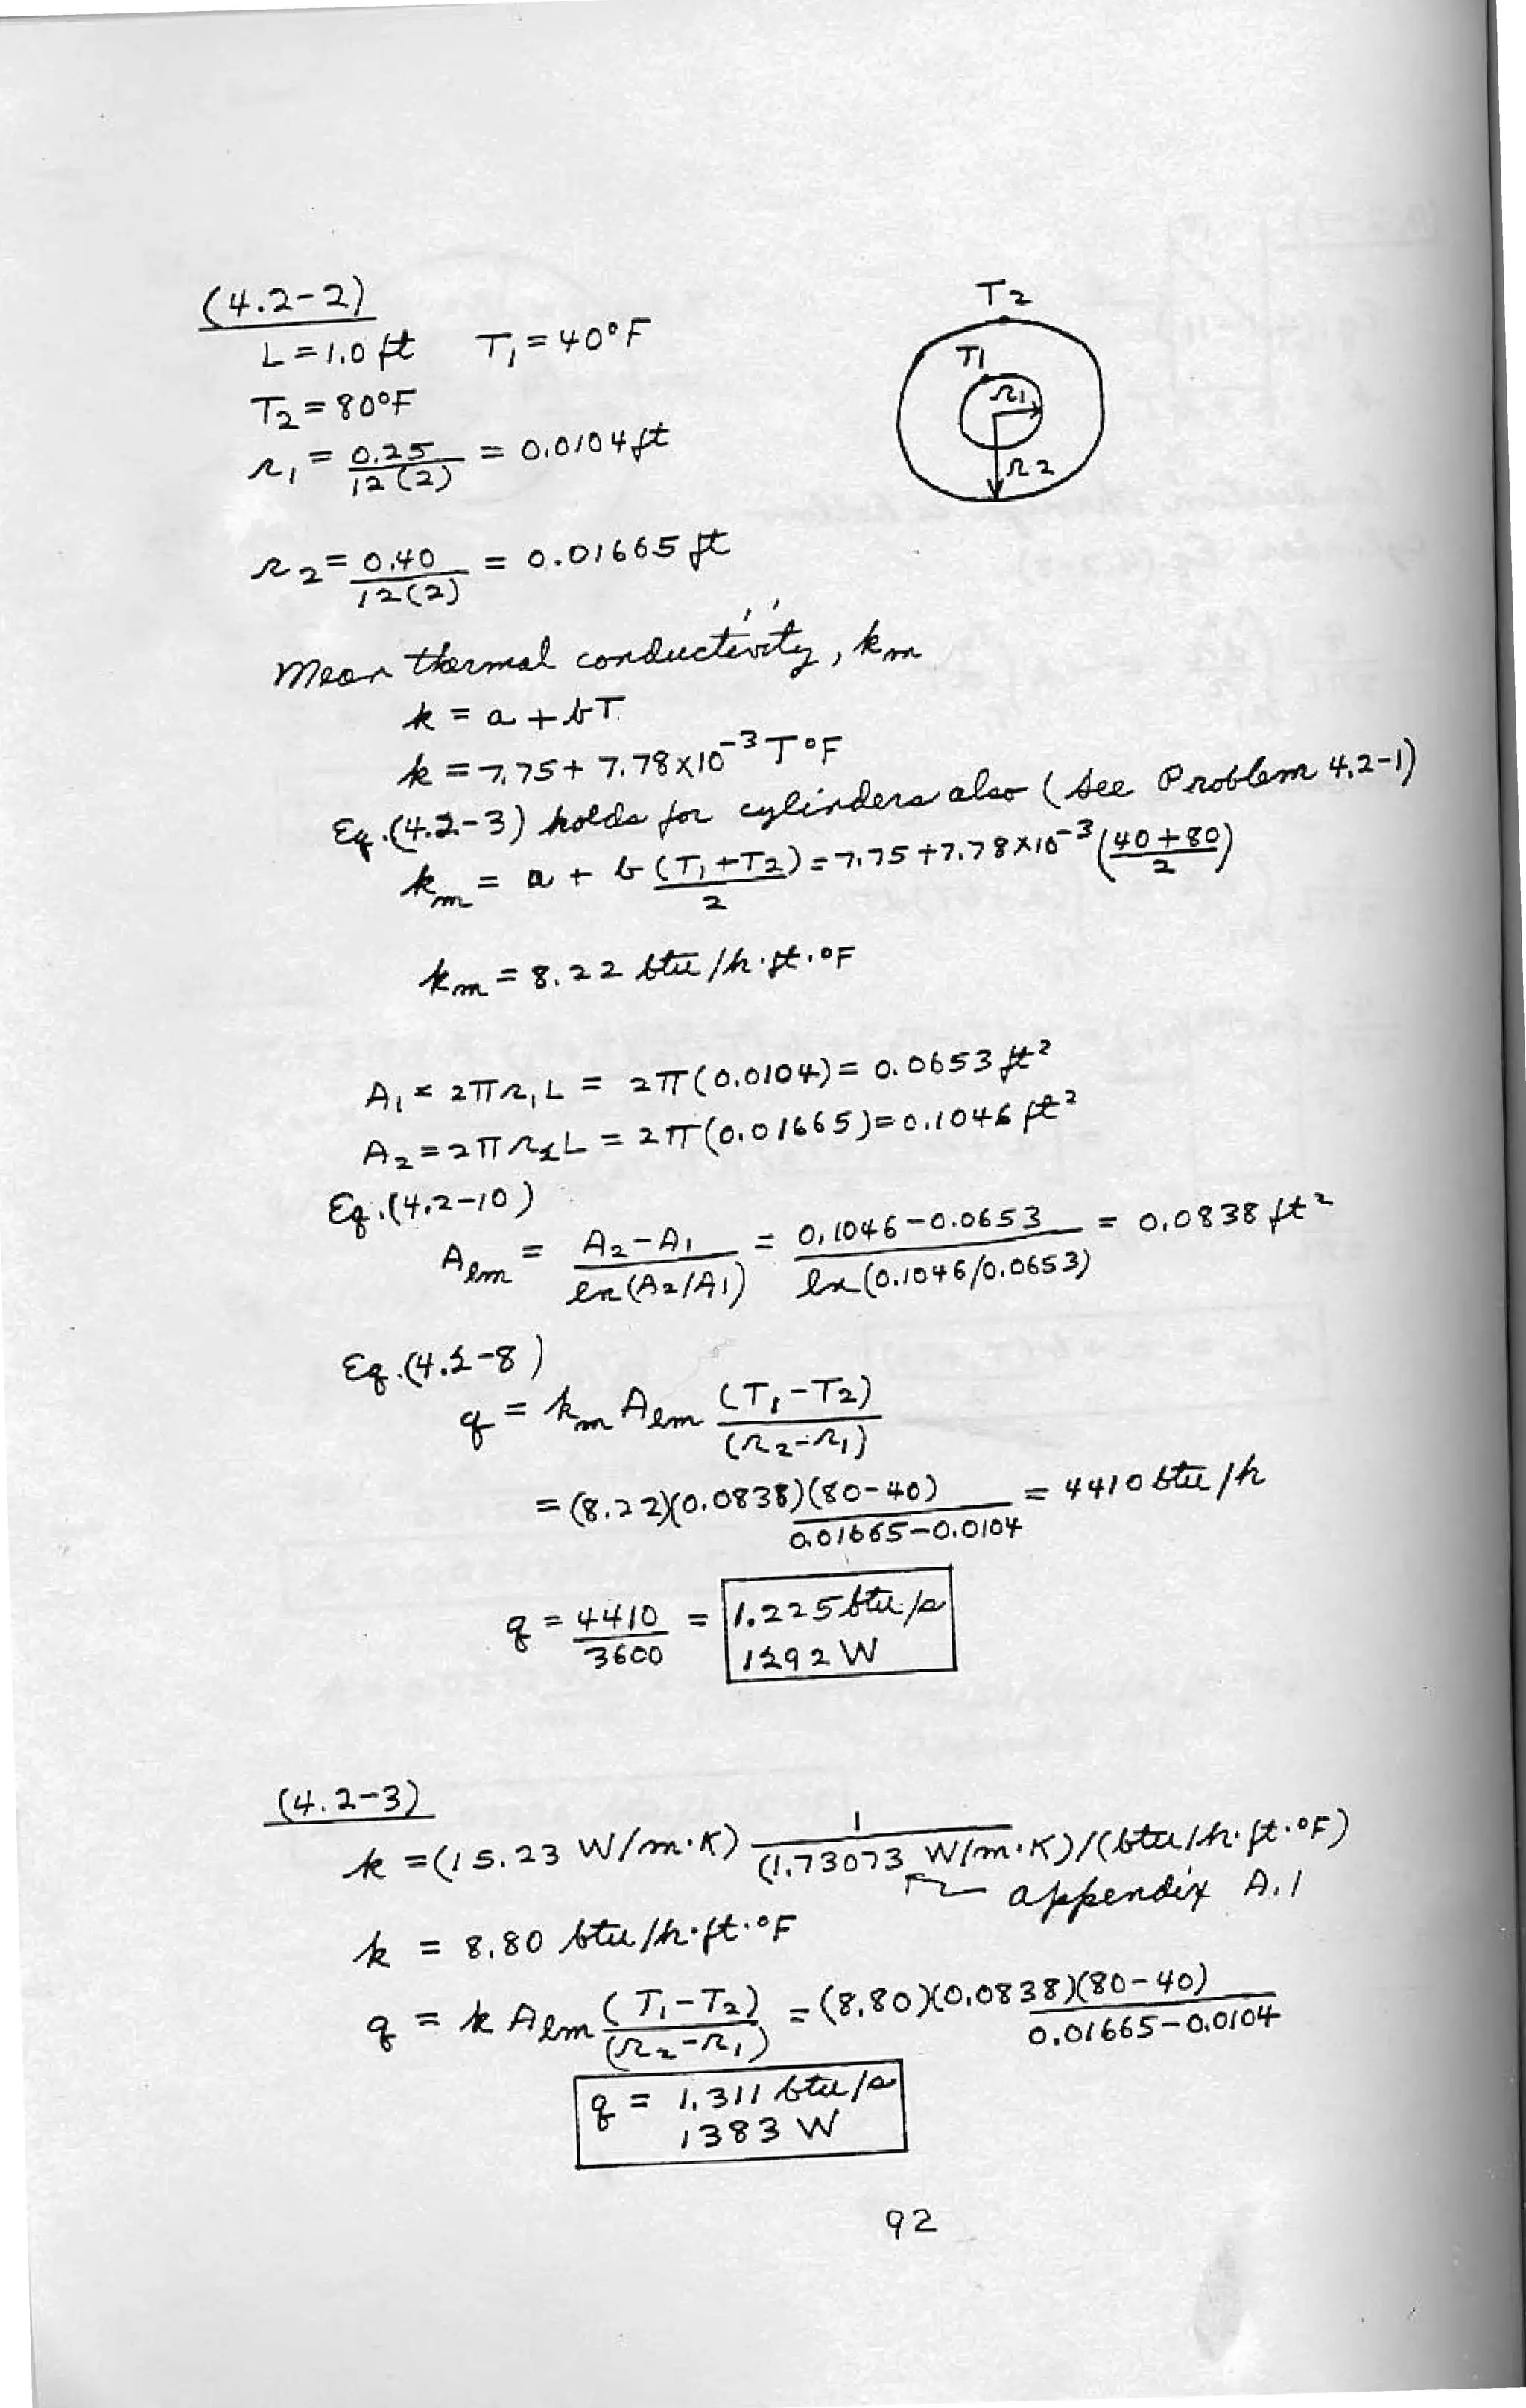 (4.2-2)
L = 1.0 ft   T₁ = 40°F
T₂ = 80°F
r₁ = 0.25 / 12(2) = 0.0104 ft
r₂ = 0.40 / 12(2) = 0.01665 ft
T₂
T₁
r₁
r₂
Mean thermal conductivity, kₘ
k = a + bT
k = 7.75 + 7.78×10⁻³ T °F
Eq. (4.2-3) holds for cylinders also (See Problem 4.2-1)
kₘ = a + b (T₁+T₂)/2 = 7.75 + 7.78×10⁻³ ((40+80)/2)
kₘ = 8.22 btu/h·ft·°F
A₁ = 2πr₁L = 2π(0.0104) = 0.0653 ft²
A₂ = 2πr₂L = 2π(0.01665) = 0.1046 ft²
Eq. (4.2-10)
Aₗₘ = (A₂-A₁) / ln(A₂/A₁) = (0.1046-0.0653) / ln(0.1046/0.0653) = 0.0838 ft²
Eq. (4.2-8)
q = kₘ Aₗₘ (T₁-T₂)/(r₂-r₁)
= (8.22)(0.0838)(80-40) / (0.01665-0.0104) = 4410 btu/h
q = 4410/3600 = 1.225 btu/s
1292 W
(4.2-3)
k = (15.23 W/m·K) 1 / (1.73073 W/m·K)/(btu/h·ft·°F)
appendix A.1
k = 8.80 btu/h·ft·°F
q = k Aₗₘ (T₁-T₂)/(r₂-r₁) = (8.80)(0.0838)(80-40) / (0.01665-0.0104)
q = 1.311 btu/s
1383 W
92